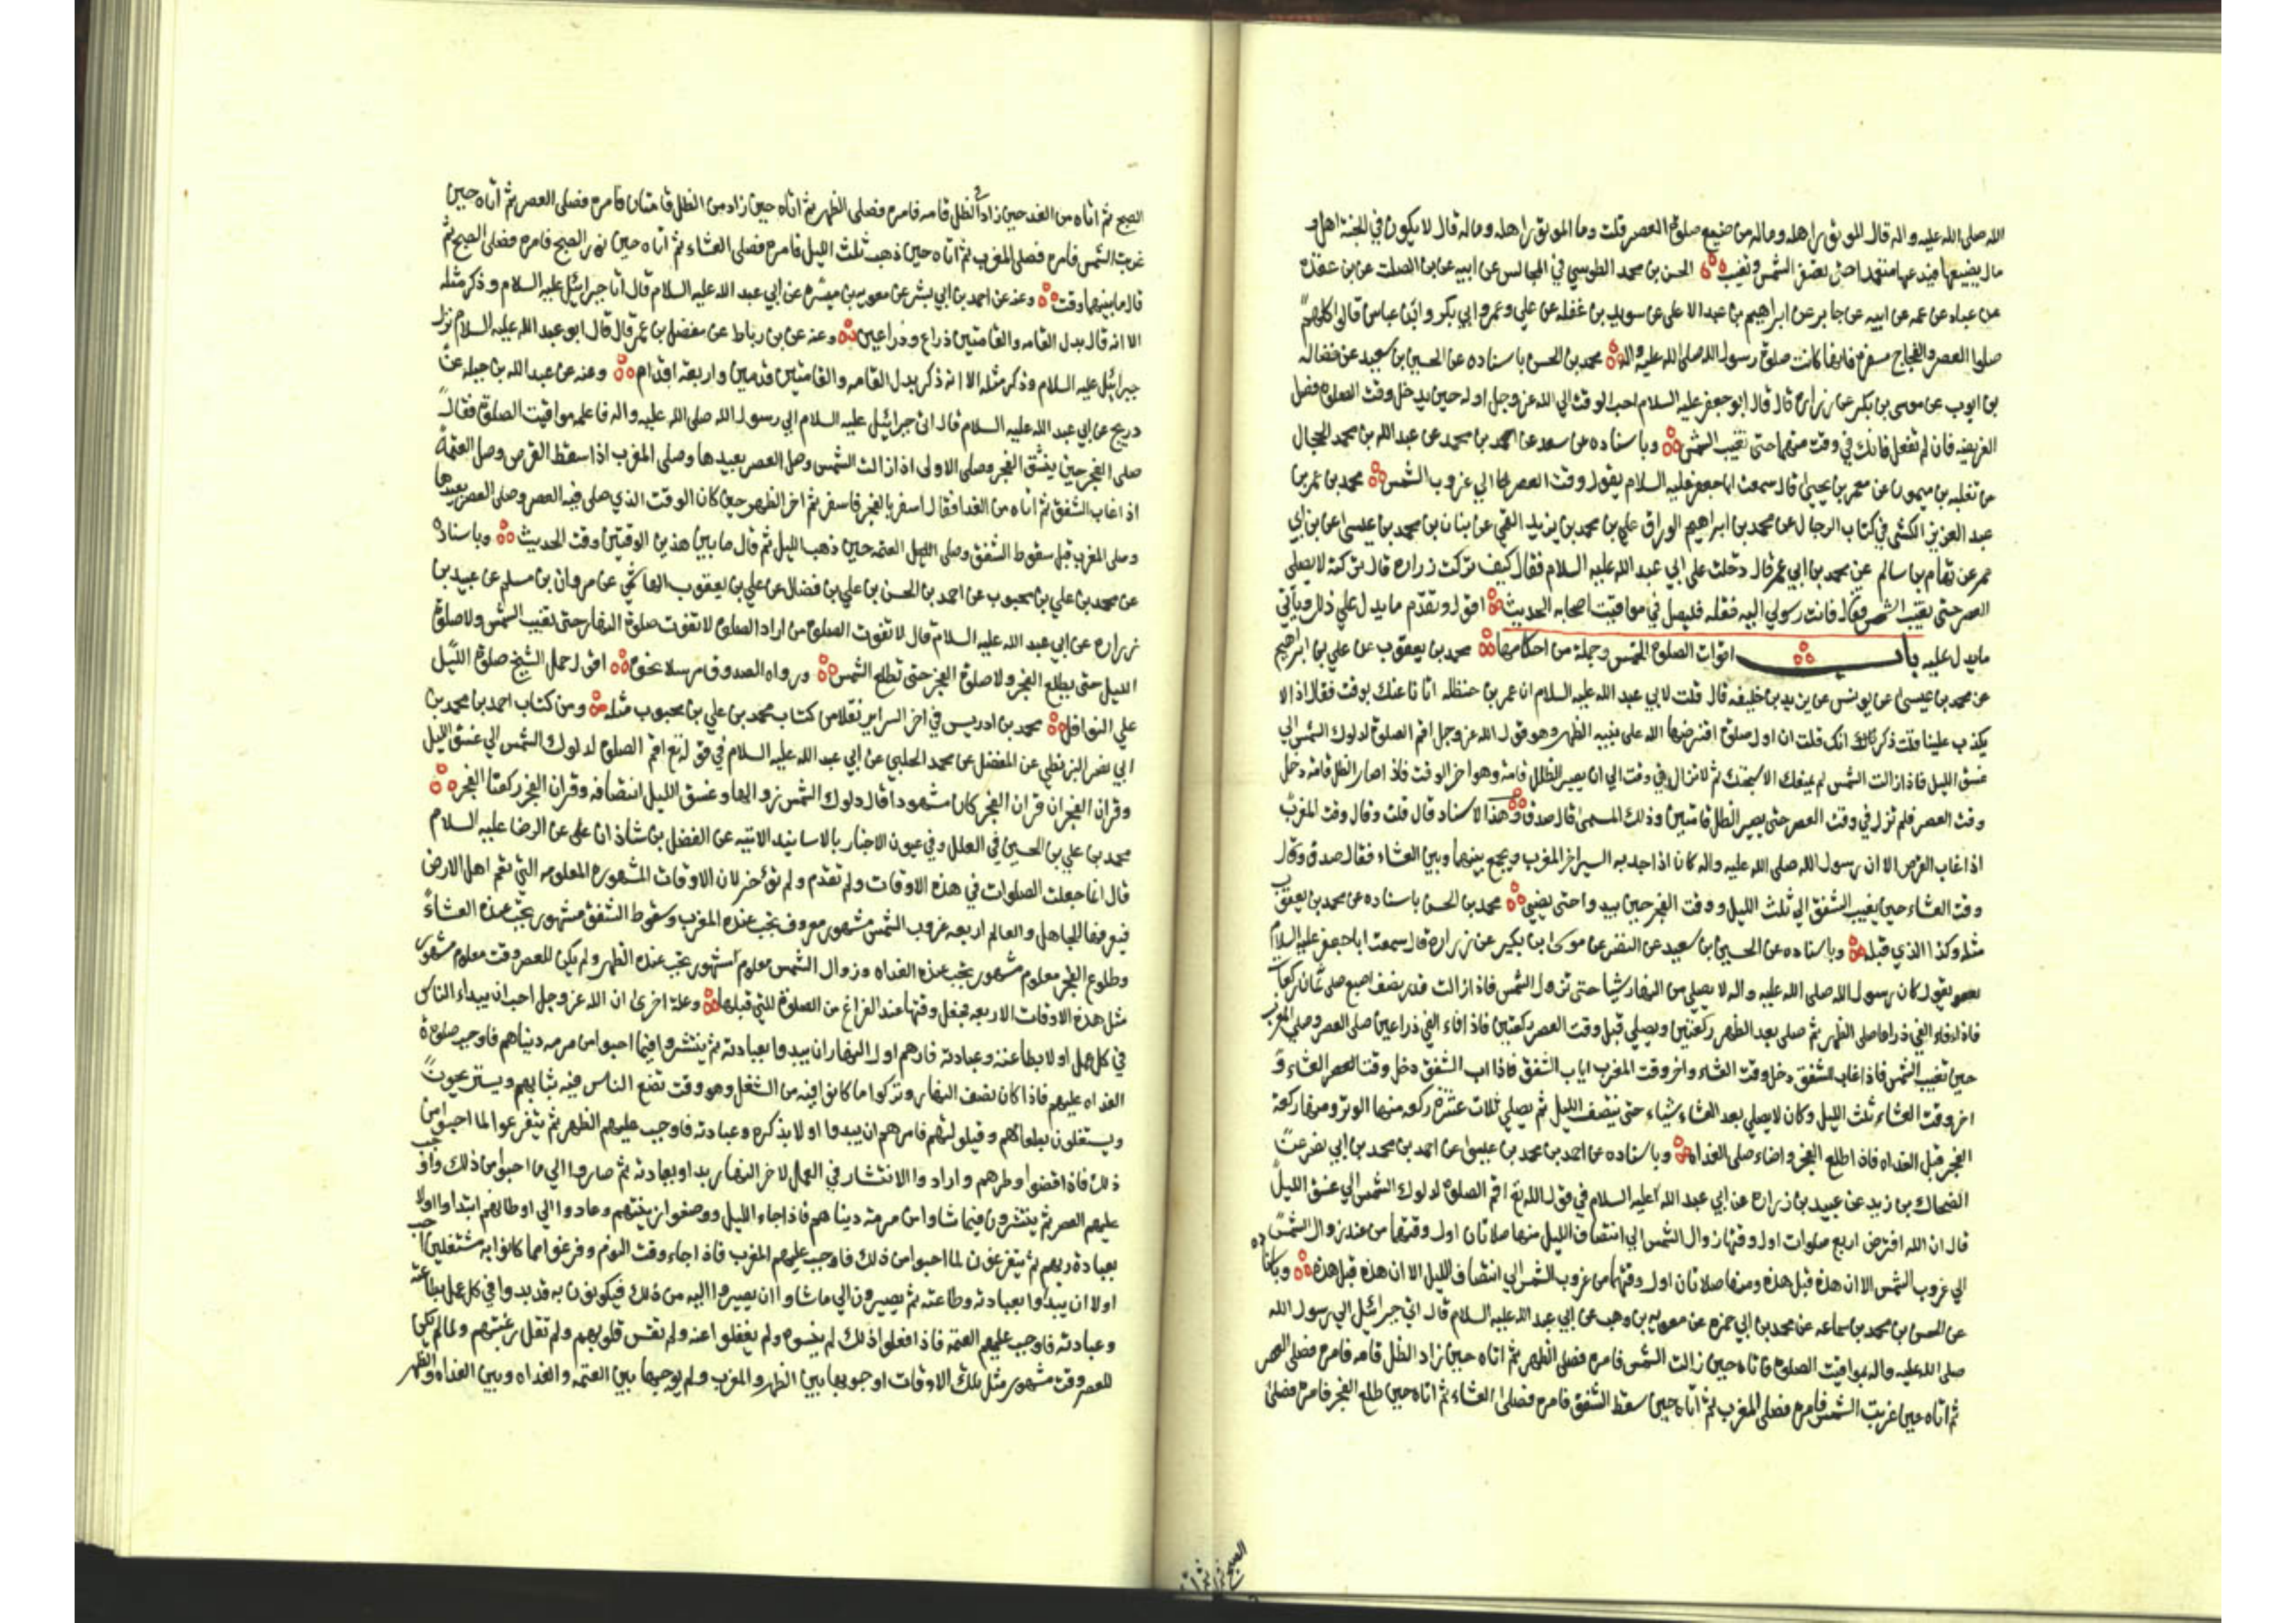 الله صلى الله عليه واله قال الموتور اهله وماله من ضيع صلوة العصر قلت وما الموتور اهله وماله قال لا يكون في الجنة اهل و
مال يضيعها فيدعها متعمدا حتى تصفر الشمس وتغيب الحسن بن محمد الطوسي في المجالس عن ابيه عن بن الصلت عن بن عقدة
عن عباد عن عمه عن ابيه عن جابر عن ابراهيم بن عبد الاعلى عن سويد بن غفله عن علي وعمر وابي بكر وابن عباس قالوا كلهم
صلوا العصر والفجاج مسفرة فانها كانت صلوة رسول الله صلى الله عليه واله محمد بن الحسن باسناده عن الحسين بن سعيد عن فضاله
بن ايوب عن موسى بن بكر عن زرارة قال قال ابو جعفر عليه السلام احب الوقت الي الله عز وجل اوله حين يدخل وقت الصلوة فصل
الفريضة فان لم تفعل فانك في وقت منهما حتى تغيب الشمس وباسناده عن سعد عن احمد بن محمد عن عبد الله بن محمد الحجال
عن ثعلبه بن ميمون عن معمر بن يحيى قال سمعت ابا جعفر عليه السلام يقول وقت العصر الي غروب الشمس محمد بن عمر بن
عبد العزيز الكشي في كتاب الرجال عن محمد بن ابراهيم الوراق علي بن محمد بن يزيد القمي عن بنان بن محمد بن عيسى عن بن ابي
عمر عن هشام بن سالم عن محمد بن ابي عمر قال دخلت على ابي عبد الله عليه السلام فقال كيف تركت زرارة قال تركته لا يصلى
العصر حتى تغيب الشمس فقال فانت رسولي اليه فقل له فليصل في مواقيت اصحابه الحديث اقول وتقدم ما يدل علي ذلك وياتي
ما يدل عليه باب اوقات الصلوة الخمس وجملة من احكامها محمد بن يعقوب عن علي بن ابراهيم
عن محمد بن عيسى عن يونس عن يزيد بن خليفه قال قلت لابي عبد الله عليه السلام ان عمر بن حنظله اتانا عنك بوقت فقال اذا لا
يكذب علينا قلت ذكر انك قلت ان اول صلوة افترضها الله على نبيه الظهر وهو قول الله عز وجل اقم الصلوة لدلوك الشمس الي
غسق الليل فاذا زالت الشمس لم يمنعك الا سبحتك ثم لا تزال في وقت الي ان يصير الظل قامة وهو اخر الوقت فاذا صار الظل قامة دخل
وقت العصر فلم تزل في وقت العصر حتى يصير الظل قامتين وذلك المساء قال صدق وبهذا الاسناد قال قلت وقال وقت المغرب
اذا غاب القرص الا ان رسول الله صلى الله عليه واله كان اذا جد به السير اخر المغرب ويجمع بينهما وبين العشاء فقال صدق وقال
وقت العشاء حين يغيب الشفق الي ثلث الليل ووقت الفجر حين يبدو حتى يضيء محمد بن الحسن باسناده عن محمد بن يعقوب
مثله وكذا الذي قبله وباسناده عن الحسين بن سعيد عن النضر عن موسى بن بكير عن زرارة قال سمعت ابا جعفر عليه السلام
يقول كان رسول الله صلى الله عليه واله لا يصلي من النهار شيا حتى تزول الشمس فاذا زالت قدر نصف اصبع صلى ثمان ركعات
فاذا فاء الفي ذراعا صلى الظهر ثم صلى بعد الظهر ركعتين ويصلي قبل وقت العصر ركعتين فاذا فاء الفي ذراعين صلى العصر وصلي المغرب
حين تغيب الشمس فاذا غاب الشفق دخل وقت العشاء واخر وقت المغرب اياب الشفق فاذا اب الشفق دخل وقت العشاء و
اخر وقت العشاء ثلث الليل وكان لا يصلي بعد العشاء شياء حتى ينتصف الليل ثم يصلي ثلاث عشرة ركعه منها الوتر ومنها ركعة
الفجر قبل الغداه فاذا طلع الفجر واضاء صلى الغداة وباسناده عن احمد بن محمد بن عيسى عن احمد بن محمد بن ابي نصر عن
الضحاك بن زيد عن عبيد بن زرارة عن ابي عبد الله عليه السلام في قول الله تع اقم الصلوة لدلوك الشمس الي غسق الليل
قال ان الله افترض اربع صلوات اول وقتها زوال الشمس الي انتصاف الليل منها صلاتان اول وقتهما من عند زوال الشمس
الي غروب الشمس الا ان هذه قبل هذه ومنها صلاتان اول وقتهما من غروب الشمس الي انتصاف الليل الا ان هذه قبل هذه وباسناده
عن الحسن بن محمد بن سماعه عن محمد بن ابي حمزه عن معويه بن وهب عن ابي عبد الله عليه السلام قال اتي جبرائيل الي رسول الله
صلى الله عليه واله بمواقيت الصلوة فاتاه حين زالت الشمس فامره فصلى الظهر ثم اتاه حين زاد الظل قامه فامره فصلى العصر
ثم اتاه حين غربت الشمس فامره فصلى المغرب ثم اتاه حين سقط الشفق فامره فصلى العشاء ثم اتاه حين طلع الفجر فامره فصلى
الصبح ثم اتاه
الصبح ثم اتاه من الغد حين زاد الظل قامه فامره فصلى الظهر ثم اتاه حين زاد من الظل قامتان فامره فصلى العصر ثم اتاه حين
غربت الشمس فامره فصلى المغرب ثم اتاه حين ذهب ثلث الليل فامره فصلى العشاء ثم اتاه حين نور الصبح فامره فصلى الصبح ثم
قال ما بينهما وقت وعنه عن احمد بن ابي بشر عن معويه بن ميسره عن ابي عبد الله عليه السلام قال اتا جبرائيل عليه السلام وذكر مثله
الا انه قال بدل القامه والقامتين ذراع وذراعين وعنه عن بن رباط عن مفضل بن عمر قال قال ابو عبد الله عليه السلام نزل
جبرائيل عليه السلام وذكر مثله الا انه ذكر بدل القامه والقامتين قدمين واربعة اقدام وعنه عن عبد الله بن جبله عن
دريح عن ابي عبد الله عليه السلام قال اتى جبرائيل عليه السلام الي رسول الله صلى الله عليه واله فاعلمه مواقيت الصلوة فقال
صلى الفجر حين ينشق الفجر وصلى الاولى اذا زالت الشمس وصل العصر بعيدها وصلى المغرب اذا سقط القرص وصل العتمة
اذا غاب الشفق ثم اتاه من الغد فقال اسفر بالفجر فاسفر ثم اخر الظهر حين كان الوقت الذي صلى فيه العصر وصلى العصر بعيدها
وصلى المغرب قبل سقوط الشفق وصلى العتمه حين ذهب الليل ثم قال ما بين هذين الوقتين وقت الحديث وباسناده
عن محمد بن علي بن محبوب عن احمد بن الحسن بن علي بن فضال عن علي بن يعقوب الهاشمي عن مروان بن مسلم عن عبيد بن
زرارة عن ابي عبد الله عليه السلام قال لا تفوت الصلوة من اراد الصلوة لا تفوت صلوة النهار حتى تغيب الشمس ولا صلوة
الليل حتى يطلع الفجر ولا صلوة الفجر حتى تطلع الشمس ورواه الصدوق مرسلا نحوه اقول حمل الشيخ صلوة الليل
علي النوافل محمد بن ادريس في اخر السراير نقلا من كتاب محمد بن علي بن محبوب مثله ومن كتاب احمد بن محمد بن
ابي نصر البزنطي عن المفضل عن محمد الحلبي عن ابي عبد الله عليه السلام في قوله تع اقم الصلوة لدلوك الشمس الي غسق الليل
وقران الفجر ان قران الفجر كان مشهودا قال دلوك الشمس زوالها وغسق الليل انتصافه وقران الفجر ركعتا الفجر
محمد بن علي بن الحسين في العلل وفي عيون الاخبار بالاسانيد الاتيه عن الفضل بن شاذان علي عن الرضا عليه السلام
قال انما جعلت الصلوات في هذه الاوقات ولم تقدم ولم تؤخر لان الاوقات المشهورة المعلومه التي تعم اهل الارض
فيعرفها الجاهل والعالم اربعه غروب الشمس مشهور معروف يجب عنده المغرب وسقوط الشفق مشهور يجب عنده العشاء
وطلوع الفجر معلوم مشهور يجب عنده الغداه وزوال الشمس معلوم مشهور يجب عنده الظهر ولم يكن للعصر وقت معلوم مشهور
مثل هذه الاوقات الاربعه فجعل وقتها عند الفراغ من الصلوة التي قبلها وعلة اخرى ان الله عز وجل احب ان يبداء الناس
في كل عمل اولا بطاعته وعبادته فامرهم اول النهار ان يبدوا بعبادته ثم ينتشروا فيما احبوا من مرمه دنياهم فاوجب صلوة
الغداه عليهم فاذا كان نصف النهار وتركوا ما كانوا فيه من الشغل وهو وقت تضع الناس فيه ثيابهم ويستريحون
ويشتغلون بطعامهم وقيلولتهم فامرهم ان يبدوا اولا بذكره وعبادته فاوجب عليهم الظهر ثم يتفرغوا لما احبوا من
ذلك فاذا قضوا وطرهم وارادوا الانتشار في العمل لاخر النهار بداوا بعبادته ثم صاروا الي ما احبوا من ذلك واوجب
عليهم العصر ثم ينتشرون فيما شاوا من مرمة دنياهم فاذا جاء الليل ووضعوا زينتهم وعادوا الي اوطانهم ابتداوا اولا
بعبادة ربهم ثم يتفرغون لما احبوا من ذلك فاوجب عليهم المغرب فاذا جاء وقت النوم وفرغوا مما كانوا به مشتغلين احب
اولا ان يبدوا بعبادته وطاعته ثم يصيرون الي ما شاوا ان يصيروا اليه من ذلك فيكونون به قد بدوا في كل عمل بطاعته
وعبادته فاوجب عليهم العتمة فاذا فعلوا ذلك لم ينسوه ولم يغفلوا عنه ولم تقس قلوبهم ولم تقل رغبتهم ولما لم يكن
للعصر وقت مشهور مثل تلك الاوقات اوجبها بين الظهر والمغرب ولم يوجبها بين العتمه والغداه وبين الغداه والظهر